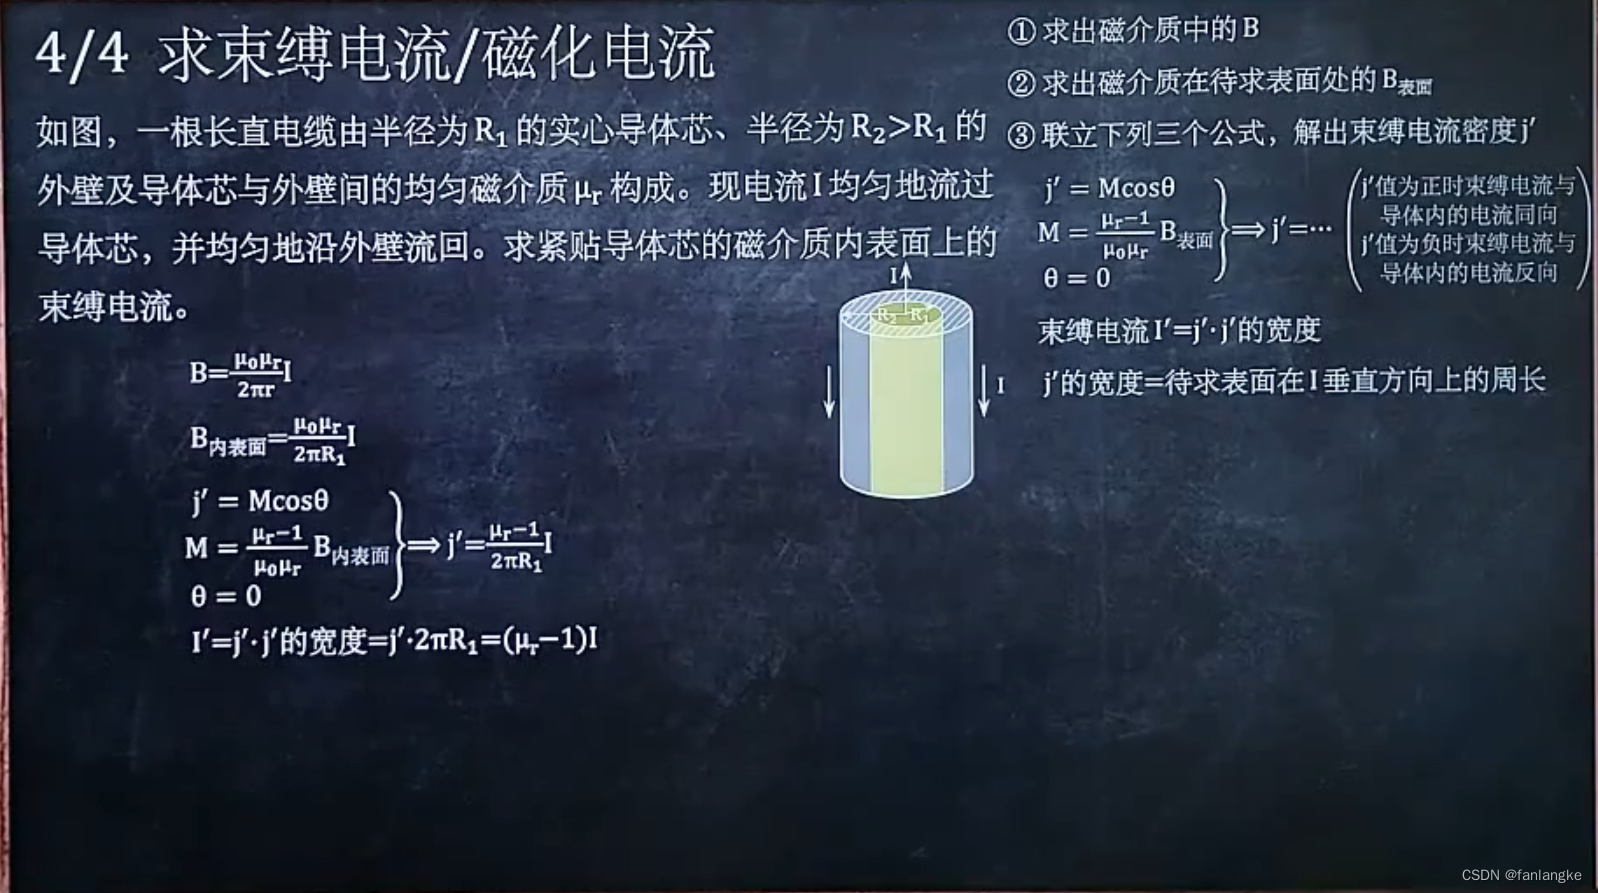 4/4 求束缚电流/磁化电流
如图，一根长直电缆由半径为R₁的实心导体芯、半径为R₂>R₁的
外壁及导体芯与外壁间的均匀磁介质μᵣ构成。现电流I均匀地流过
导体芯，并均匀地沿外壁流回。求紧贴导体芯的磁介质内表面上的
束缚电流。
B=μ₀μᵣ/2πr I
B内表面=μ₀μᵣ/2πR₁ I
j′ = Mcosθ
M = μᵣ−1/μ₀μᵣ B内表面 ⟹ j′=μᵣ−1/2πR₁ I
θ = 0
I′=j′·j′的宽度=j′·2πR₁=(μᵣ−1)I
I
R₂ R₁
I
① 求出磁介质中的B
② 求出磁介质在待求表面处的B表面
③ 联立下列三个公式，解出束缚电流密度j′
j′ = Mcosθ
M = μᵣ−1/μ₀μᵣ B表面 ⟹ j′=⋯
θ = 0
(j′值为正时束缚电流与
导体内的电流同向
j′值为负时束缚电流与
导体内的电流反向)
束缚电流I′=j′·j′的宽度
j′的宽度=待求表面在I垂直方向上的周长
CSDN @fanlangke